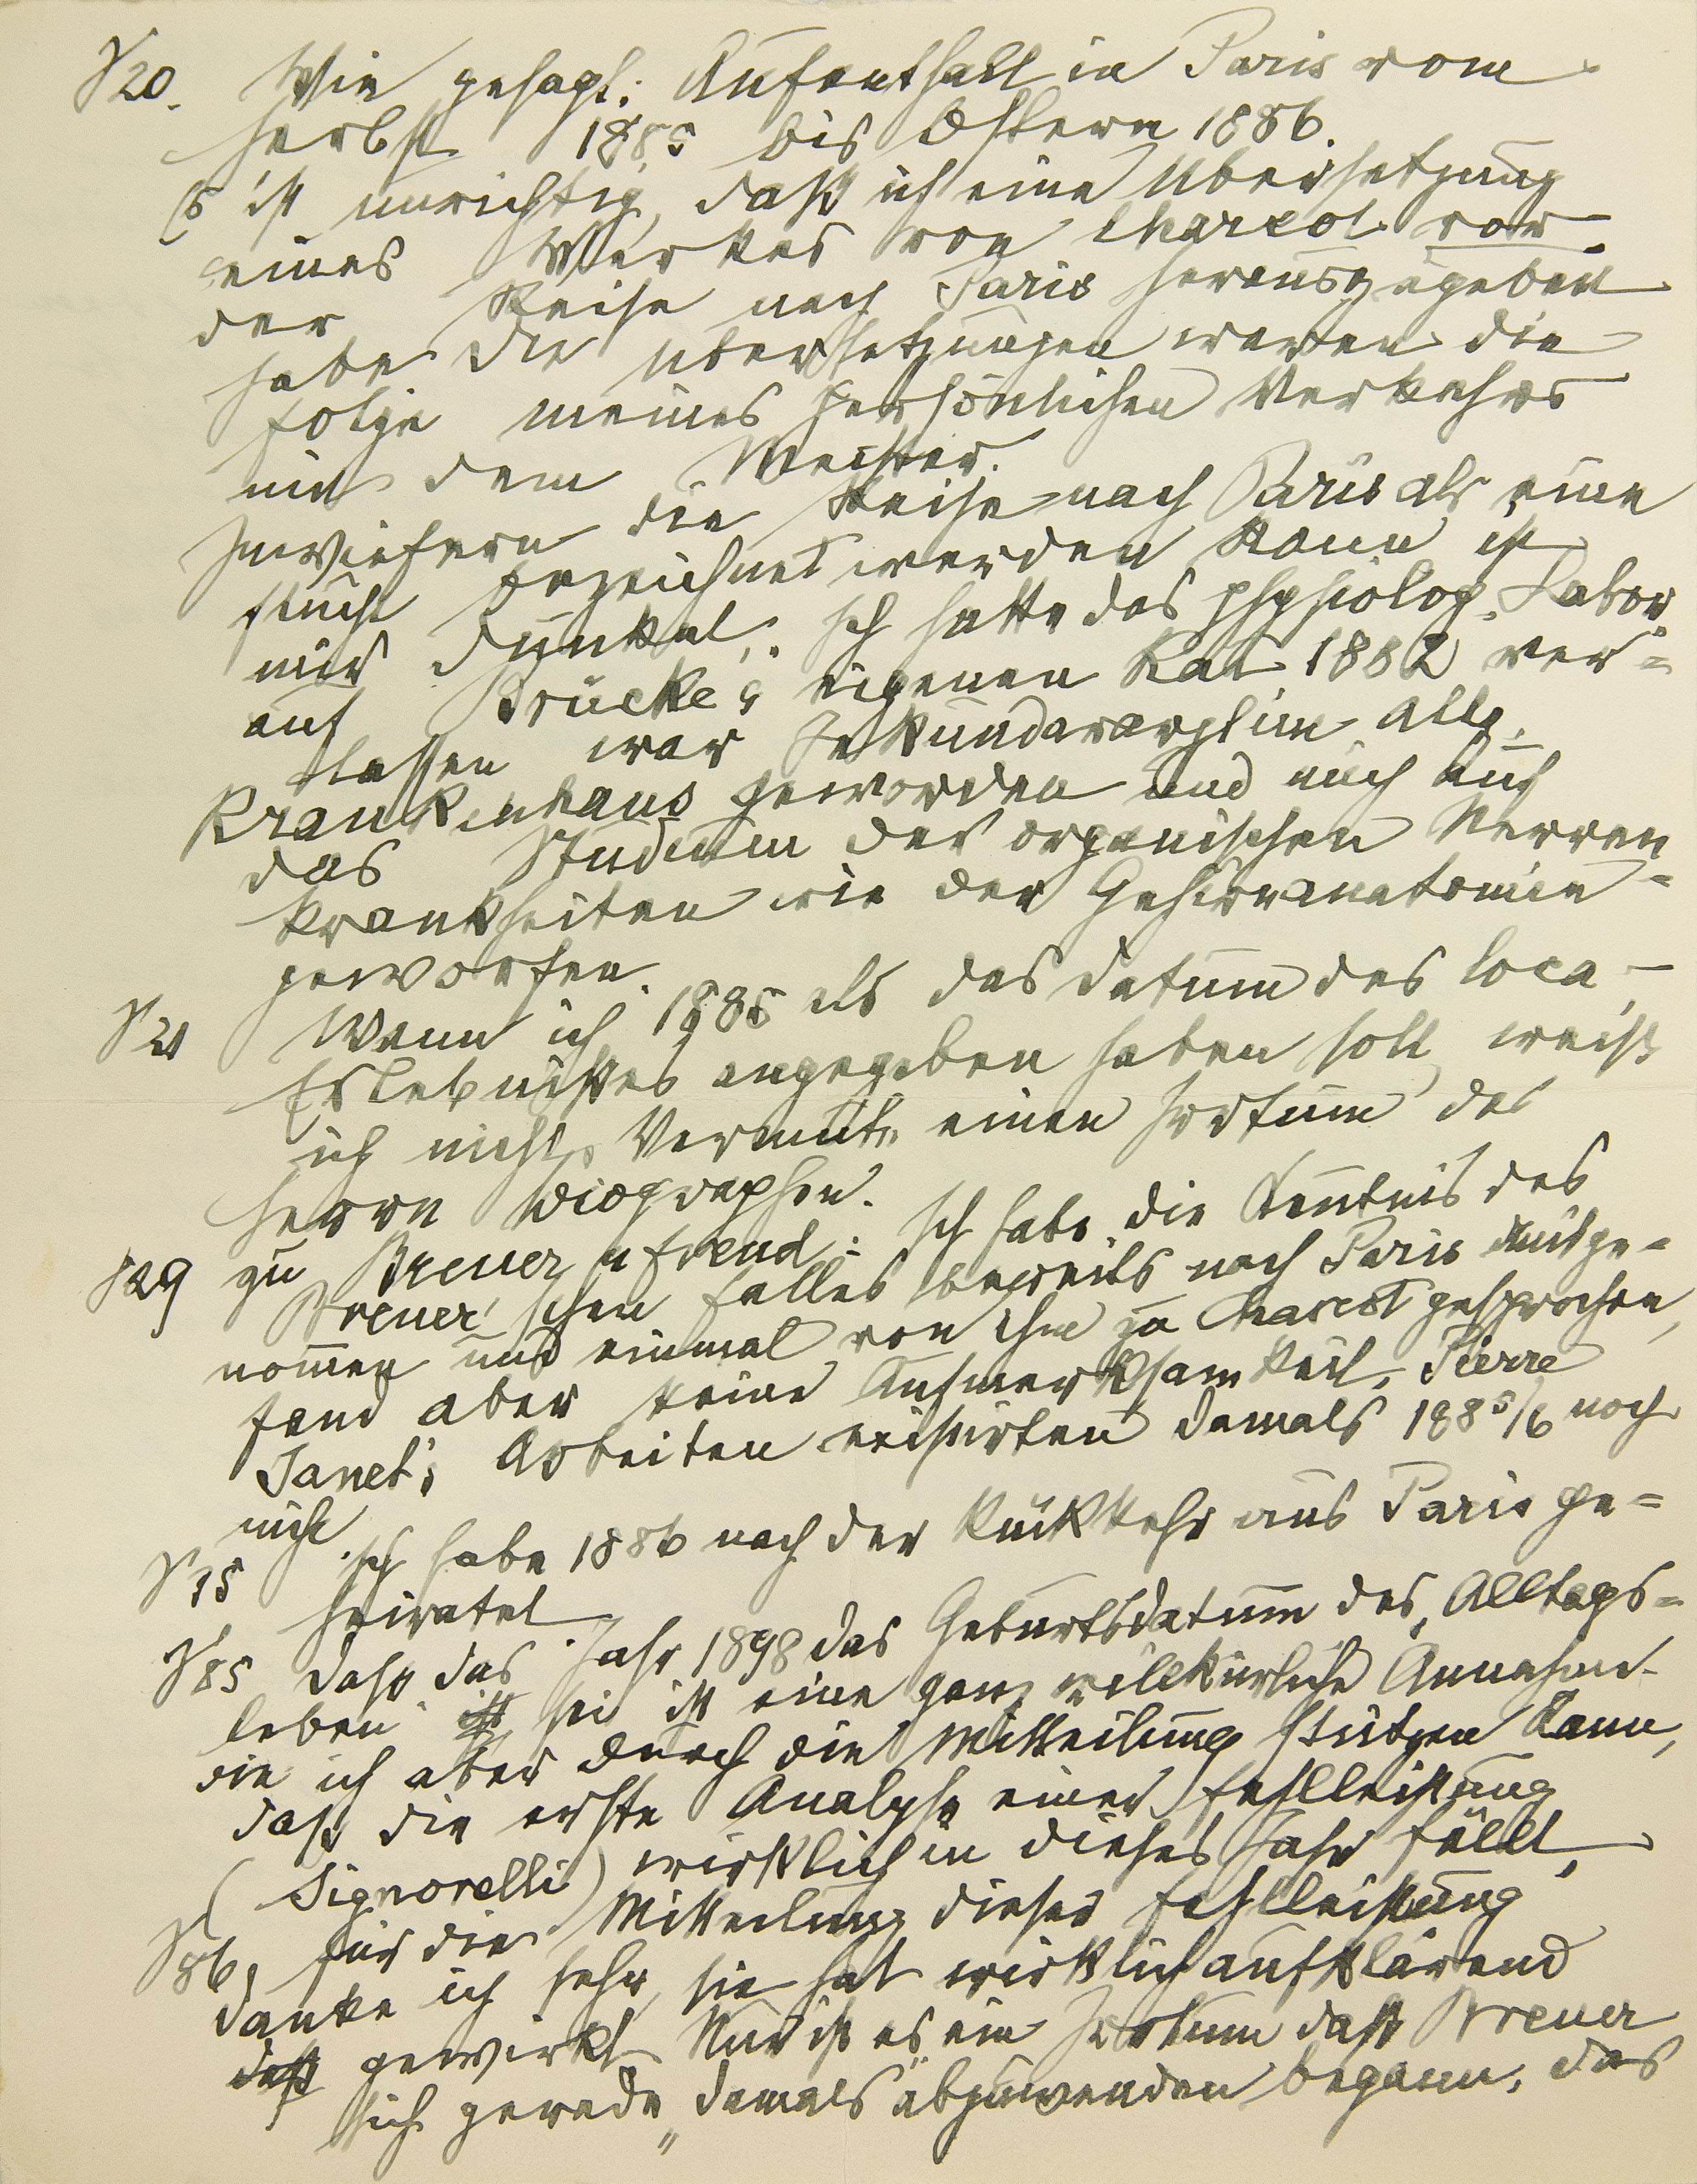 S 20. Wie gesagt: Aufenthalt in Paris vom
Herbst 1885 bis Ostern 1886.
Es ist unrichtig, daß ich eine Übersetzung
eines Werkes von Charcot vor
der Reise nach Paris herauszugeben
habe. Die Übersetzungen waren die
Folge meines persönlichen Verkehrs
mit dem Meister.
Inwiefern die Reise nach Paris als eine
Flucht bezeichnet werden kann ist
mir dunkel. Ich hatte das physiolog. Labor.
auf Brücke's eigenen Rat 1882 ver=
lassen war Sekundararzt im Allg.
Krankenhaus geworden und mich auf
das Studium der organischen Nerven
krankheiten wie der Gehirnanatomie=
geworfen.
S 21 Wenn ich 1885 als das Datum des Coca-
Erlebnisses angegeben haben soll, weiß
ich nicht. Vermute einen Irrtum des
Herrn Biographen.
S 29 zu Breuer u Freud: Ich habe die Kenntnis des
Breuer'schen Falles bereits nach Paris mitge=
nommen und einmal von ihm zu Charcot gesprochen,
fand aber keine Aufmerksamkeit. Pierre
Janet's Arbeiten existirten damals 1885/6 noch
nicht.
S 35 Ich habe 1886 nach der Rückkehr aus Paris ge=
heiratet.
S 85 Daß das Jahr 1898 das Geburtsdatum des „Alltags=
leben" ist sei ist eine ganz willkürliche Annahme
die ich aber durch die Mitteilung stützen kann,
daß die erste Analyse einer Fehlleistung
(Signorelli) wirklich in dieses Jahr fällt.
S 86, Für die Mitteilung dieser Fehlleistung
danke ich sehr, sie hat wirklich aufklärend
daß gewirkt. Nur ist es ein Irrtum daß Breuer
sich gerade „damals" abzuwenden begann, das